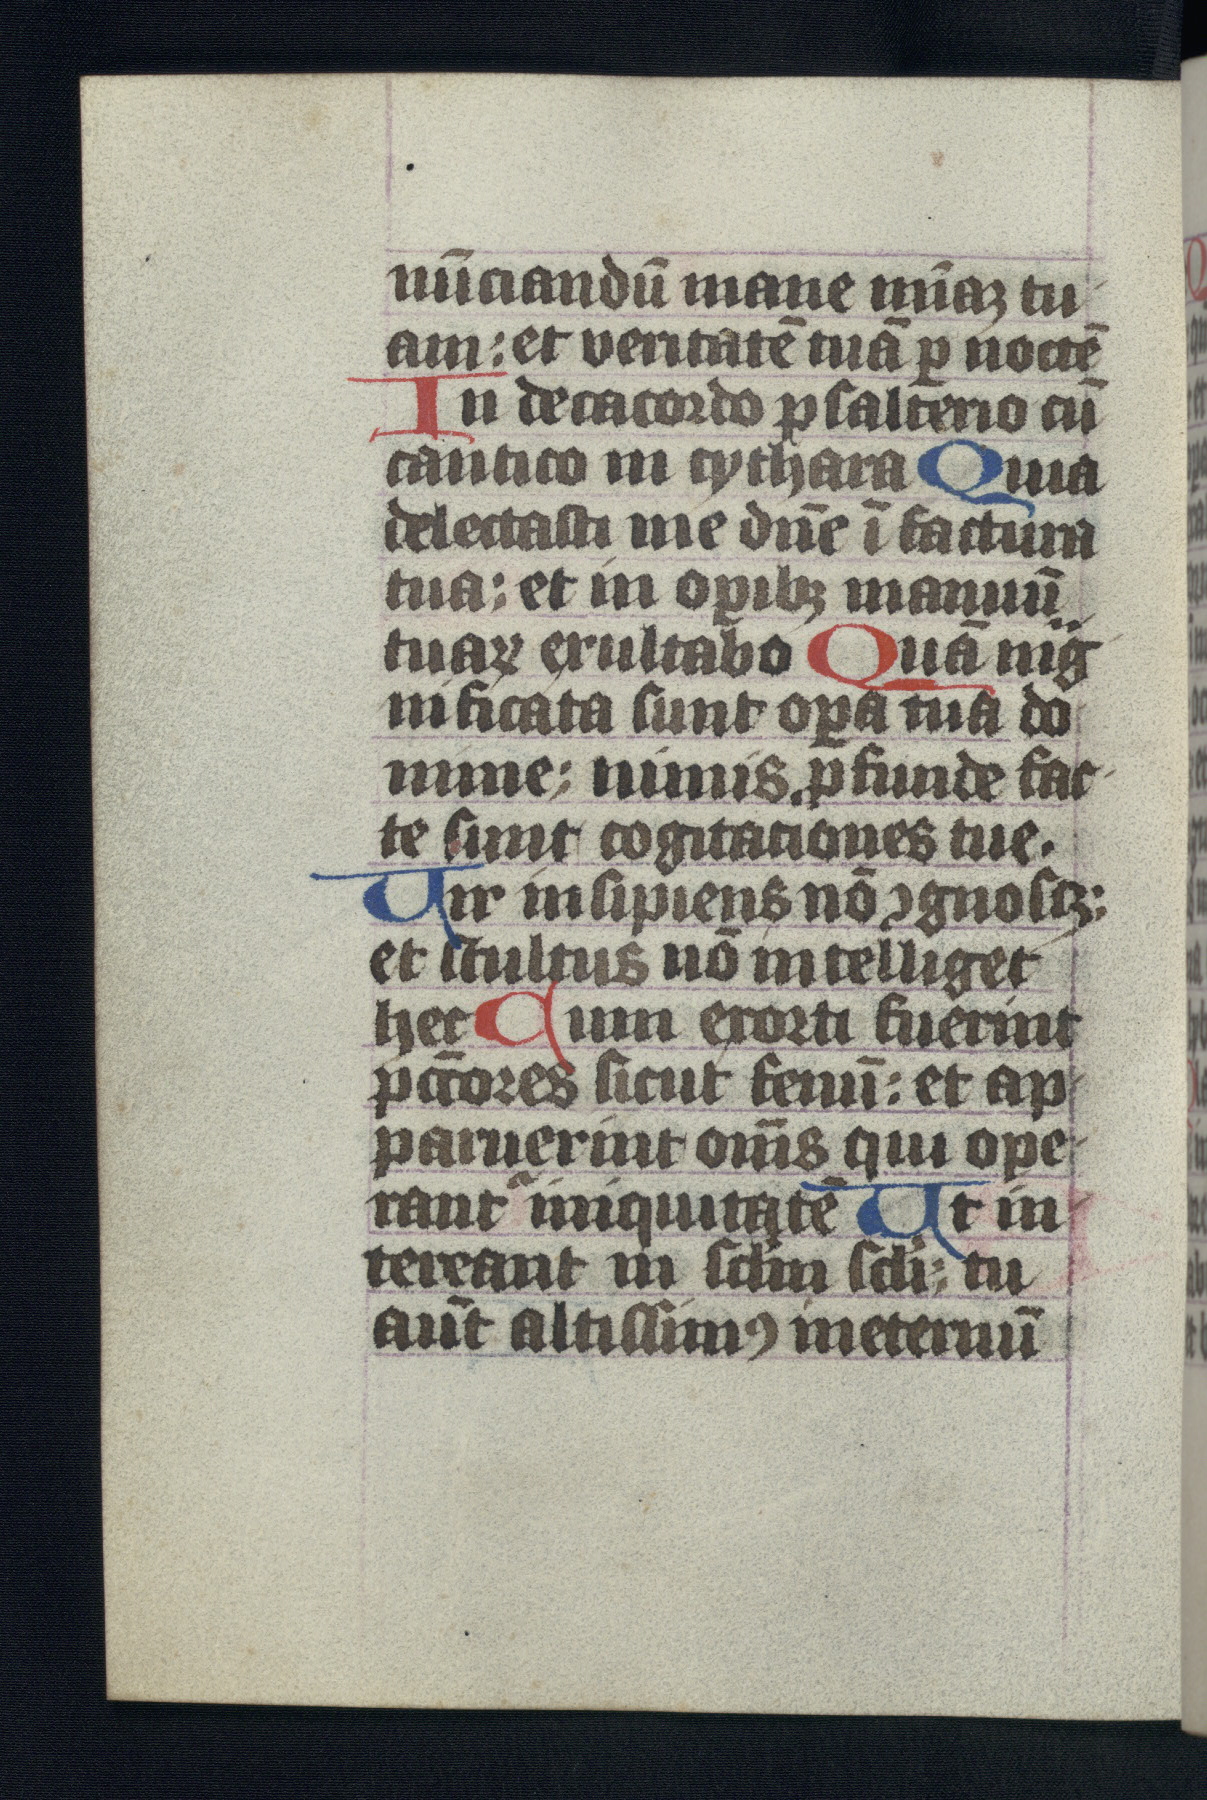 nūciandū mane mīaꝫ tu
am: et veritatē tuā ꝑ noctē
In decacordo psalterio cū
cantico in cythara Quia
delectasti me dn̄e ī factura
tua: et in oꝑibꝫ manuū
tuaꝝ exultabo Quā mag
nificata sunt oꝑa tua do
mine: nimis ꝓfunde fac
te sunt cogitaciones tue.
Uir insipiens nō ꝯgnoscꝫ:
et stultus nō intelliget
hec Cum exorti fuerint
pctōres sicut fenū: et ap
paruerint om̄s qui ope
rantᷣ iniquitatē Ut in
tereant in sclm̄ scli: tu
aūt altissimꝰ in eternū